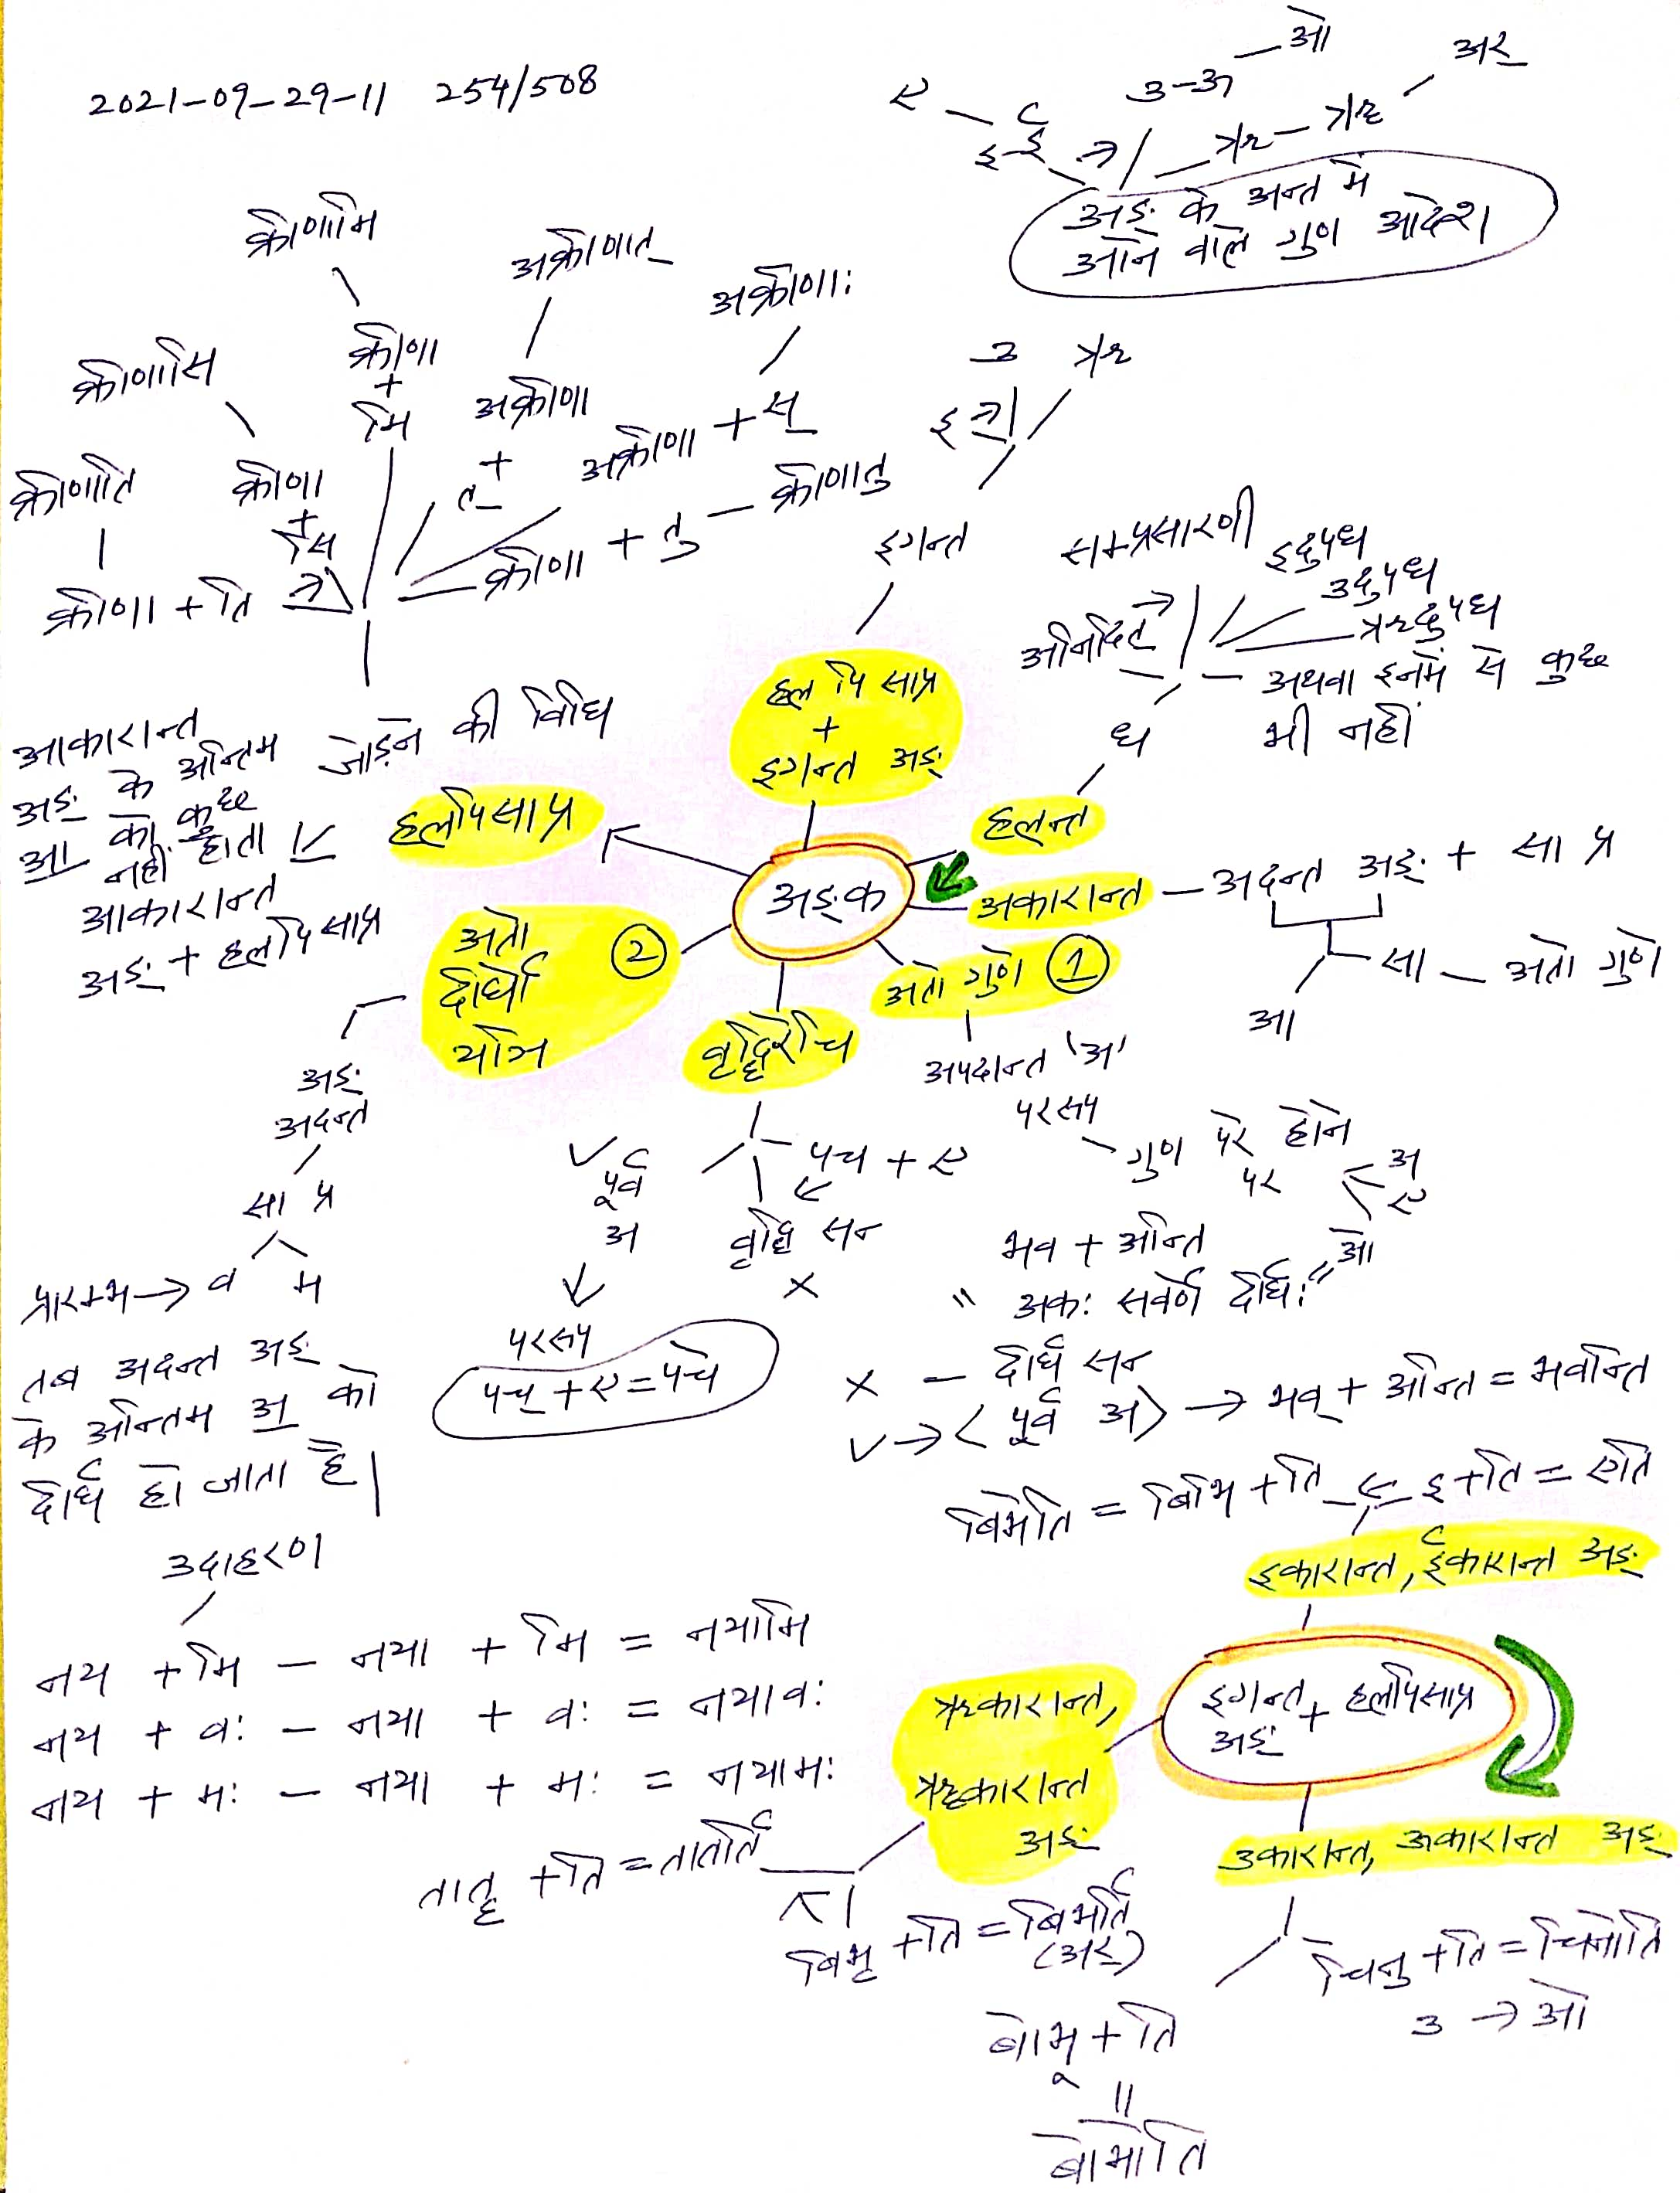 2021-09-29-11 254/508
ए - इ ई
उ-ऊ - ओ
ऋ - ॠ - अर्
अङ्ग के अन्त में
आने वाले गुण आदेश
क्रीणामि
अक्रीणात्
अक्रीणाः
क्रीणासि
क्रीणा
+
मि
अक्रीणा
+
त्
अक्रीणा + स्
क्रीणाति
क्रीणा
+
सि
क्रीणा + तु - क्रीणातु
क्रीणा + ति
इ उ ऋ
इगन्त
सम्प्रसारणी
इदुपध
उदुपध
ऋदुपध
अनिदित्
अथवा इनमें से कुछ
भी नहीं
ध
हल् पि सा प्र
+
इगन्त अङ्ग
आकारान्त
अङ्ग के अन्तिम जोड़ने की विधि
आ को कुछ
नहीं होता
आकारान्त
अङ्ग + हलपि सा प्र
हलपि सा प्र
हलन्त
अङ्क
अकारान्त - अदन्त अङ्ग + सा प्र
सा - अतो गुणे
आ
अतो गुणे 1
अतो 2
दीर्घो
यञि
वृद्धिरेचि
अपदान्त 'अ'
पररूप
गुण परे होने
पर
अ
ए
ओ
अङ्ग
अदन्त
सा प्र
प्रारम्भ → व म
तब अदन्त अङ्ग
के अन्तिम अ को
दीर्घ हो जाता है।
✓ पूर्व
अ
पररूप
पच् + ए = पचे
पच + ए
वृद्धि सन
×
भव + अन्ति
" अकः सवर्णे दीर्घः "
× - दीर्घ सन
✓ → < पूर्व अ > → भव् + अन्ति = भवन्ति
बिभेति = बिभि + ति
इ + ति = एति
इकारान्त, ईकारान्त अङ्ग
उदाहरण
नय + मि - नया + मि = नयामि
नय + वः - नया + वः = नयावः
नय + मः - नया + मः = नयामः
ऋकारान्त,
ॠकारान्त
अङ्ग
इगन्त + हलपि सा प्र
अङ्ग
उकारान्त, ऊकारान्त अङ्ग
तातृ + ति = तातर्ति
बिभृ + ति = बिभर्ति
(अर्)
चिनु + ति = चिनोति
उ → ओ
बोभू + ति
=
बोभोति